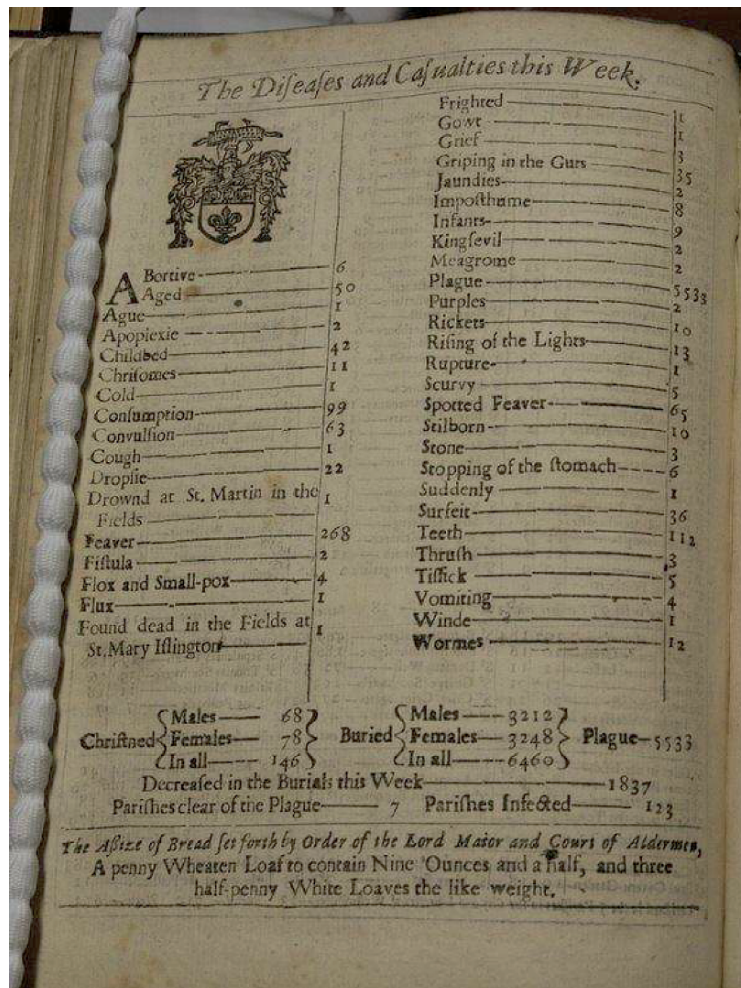 The Diſeaſes and Caſualties this Week.
ABortive 6
Aged 50
Ague 1
Apoplexie 2
Childbed 42
Chriſomes 11
Cold 1
Conſumption 99
Convulſion 63
Cough 1
Dropſie 22
Drownd at St. Martin in the
Fields 1
Feaver 268
Fiſtula 2
Flox and Small-pox 4
Flux 1
Found dead in the Fields at
St. Mary Iſlington 1
Frighted 1
Gowt 1
Grief 3
Griping in the Guts 35
Jaundies 2
Impoſthume 8
Infants 9
Kingſevil 2
Meagrome 2
Plague 5533
Purples 2
Rickets 10
Riſing of the Lights 13
Rupture 1
Scurvy 5
Spotted Feaver 65
Stilborn 10
Stone 3
Stopping of the ſtomach 6
Suddenly 1
Surfeit 36
Teeth 112
Thruſh 3
Tiſſick 5
Vomiting 4
Winde 1
Wormes 12
Chriſtned Males 68 Females 78 In all 146 Buried Males 3212 Females 3248 In all 6460 Plague 5533
Decreaſed in the Burials this Week 1837
Pariſhes clear of the Plague 7 Pariſhes Infected 123
The Aſſize of Bread ſet forth by Order of the Lord Maior and Court of Aldermen,
A penny Wheaten Loaf to contain Nine Ounces and a half, and three
half-penny White Loaves the like weight.